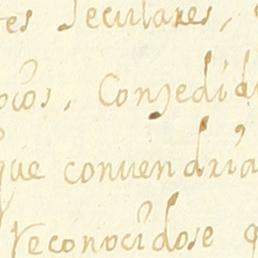 es Seculares,
ocõs, Consedid
que convendria
reconocidose